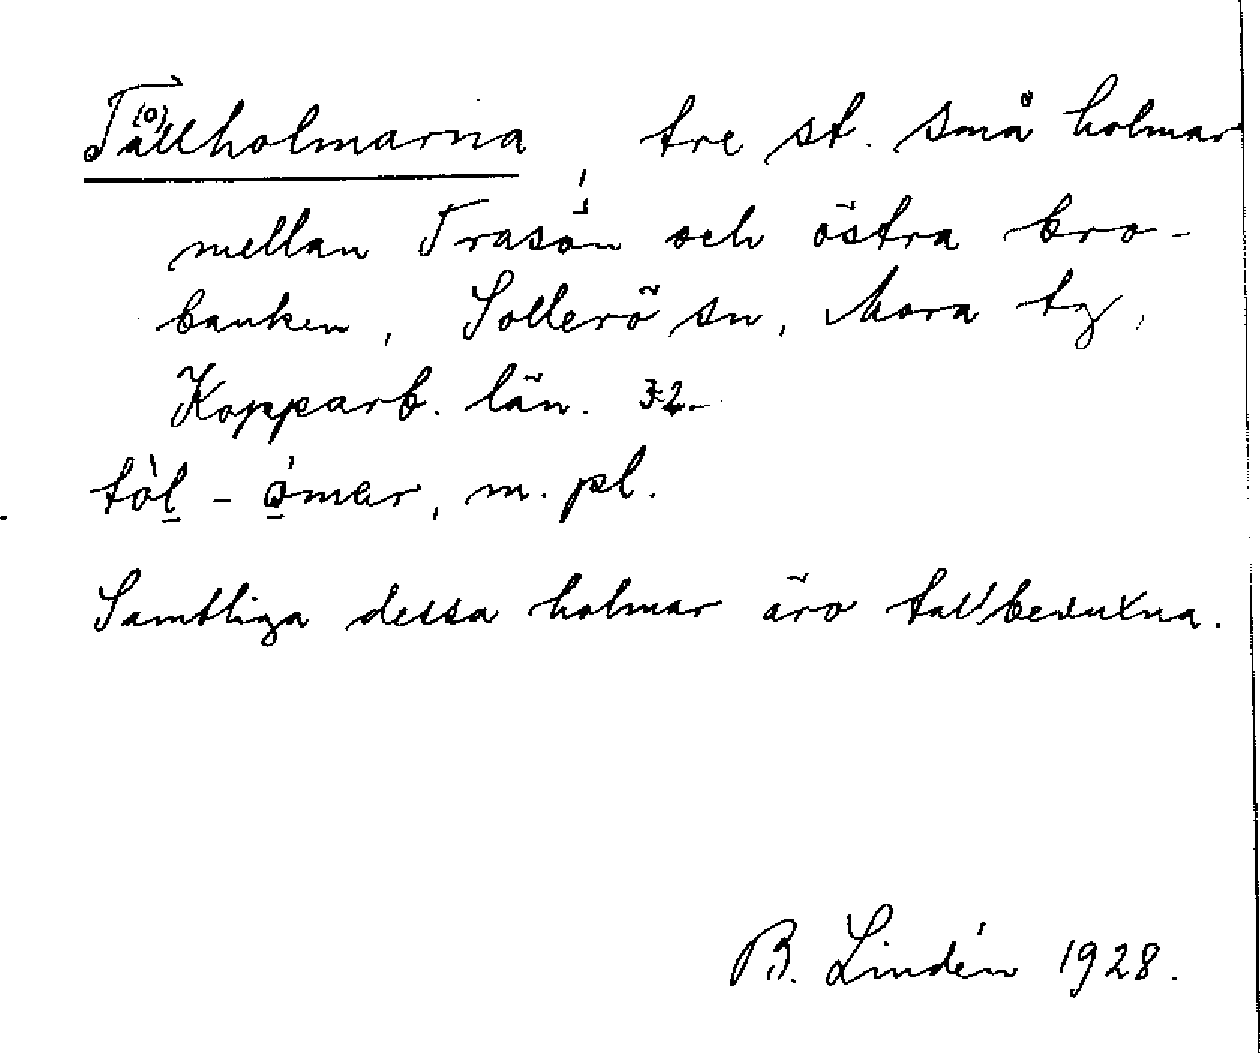 Tå(o)llholmarna, tre st. små holmar
mellan Trasön och östra bro-
banken, Sollerö sn, Mora tg,
Kopparb. län. 32.
tòl̠ - ó̠mar, m. pl.
Samtliga dessa holmar äro tallbevuxna.
B. Lindén 1928.